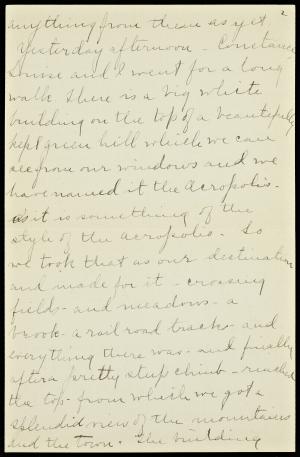 2
anything from them as yet.
Yesterday afternoon - Constance,
Louise and I went for a long
walk. There is a big white
building on the top of a beautifully
kept green hill which we can
see from our windows and we
have named it the Acropolis -
as it is something of the
style of the acropolis. So
we took that as our destination
and made for it - crossing
fields - and meadows - a
brook - a rail road track - and
everything there was - and finally
after a pretty steep climb - reached
the top - from which we got a
splendid view of the mountains
and the town. The building